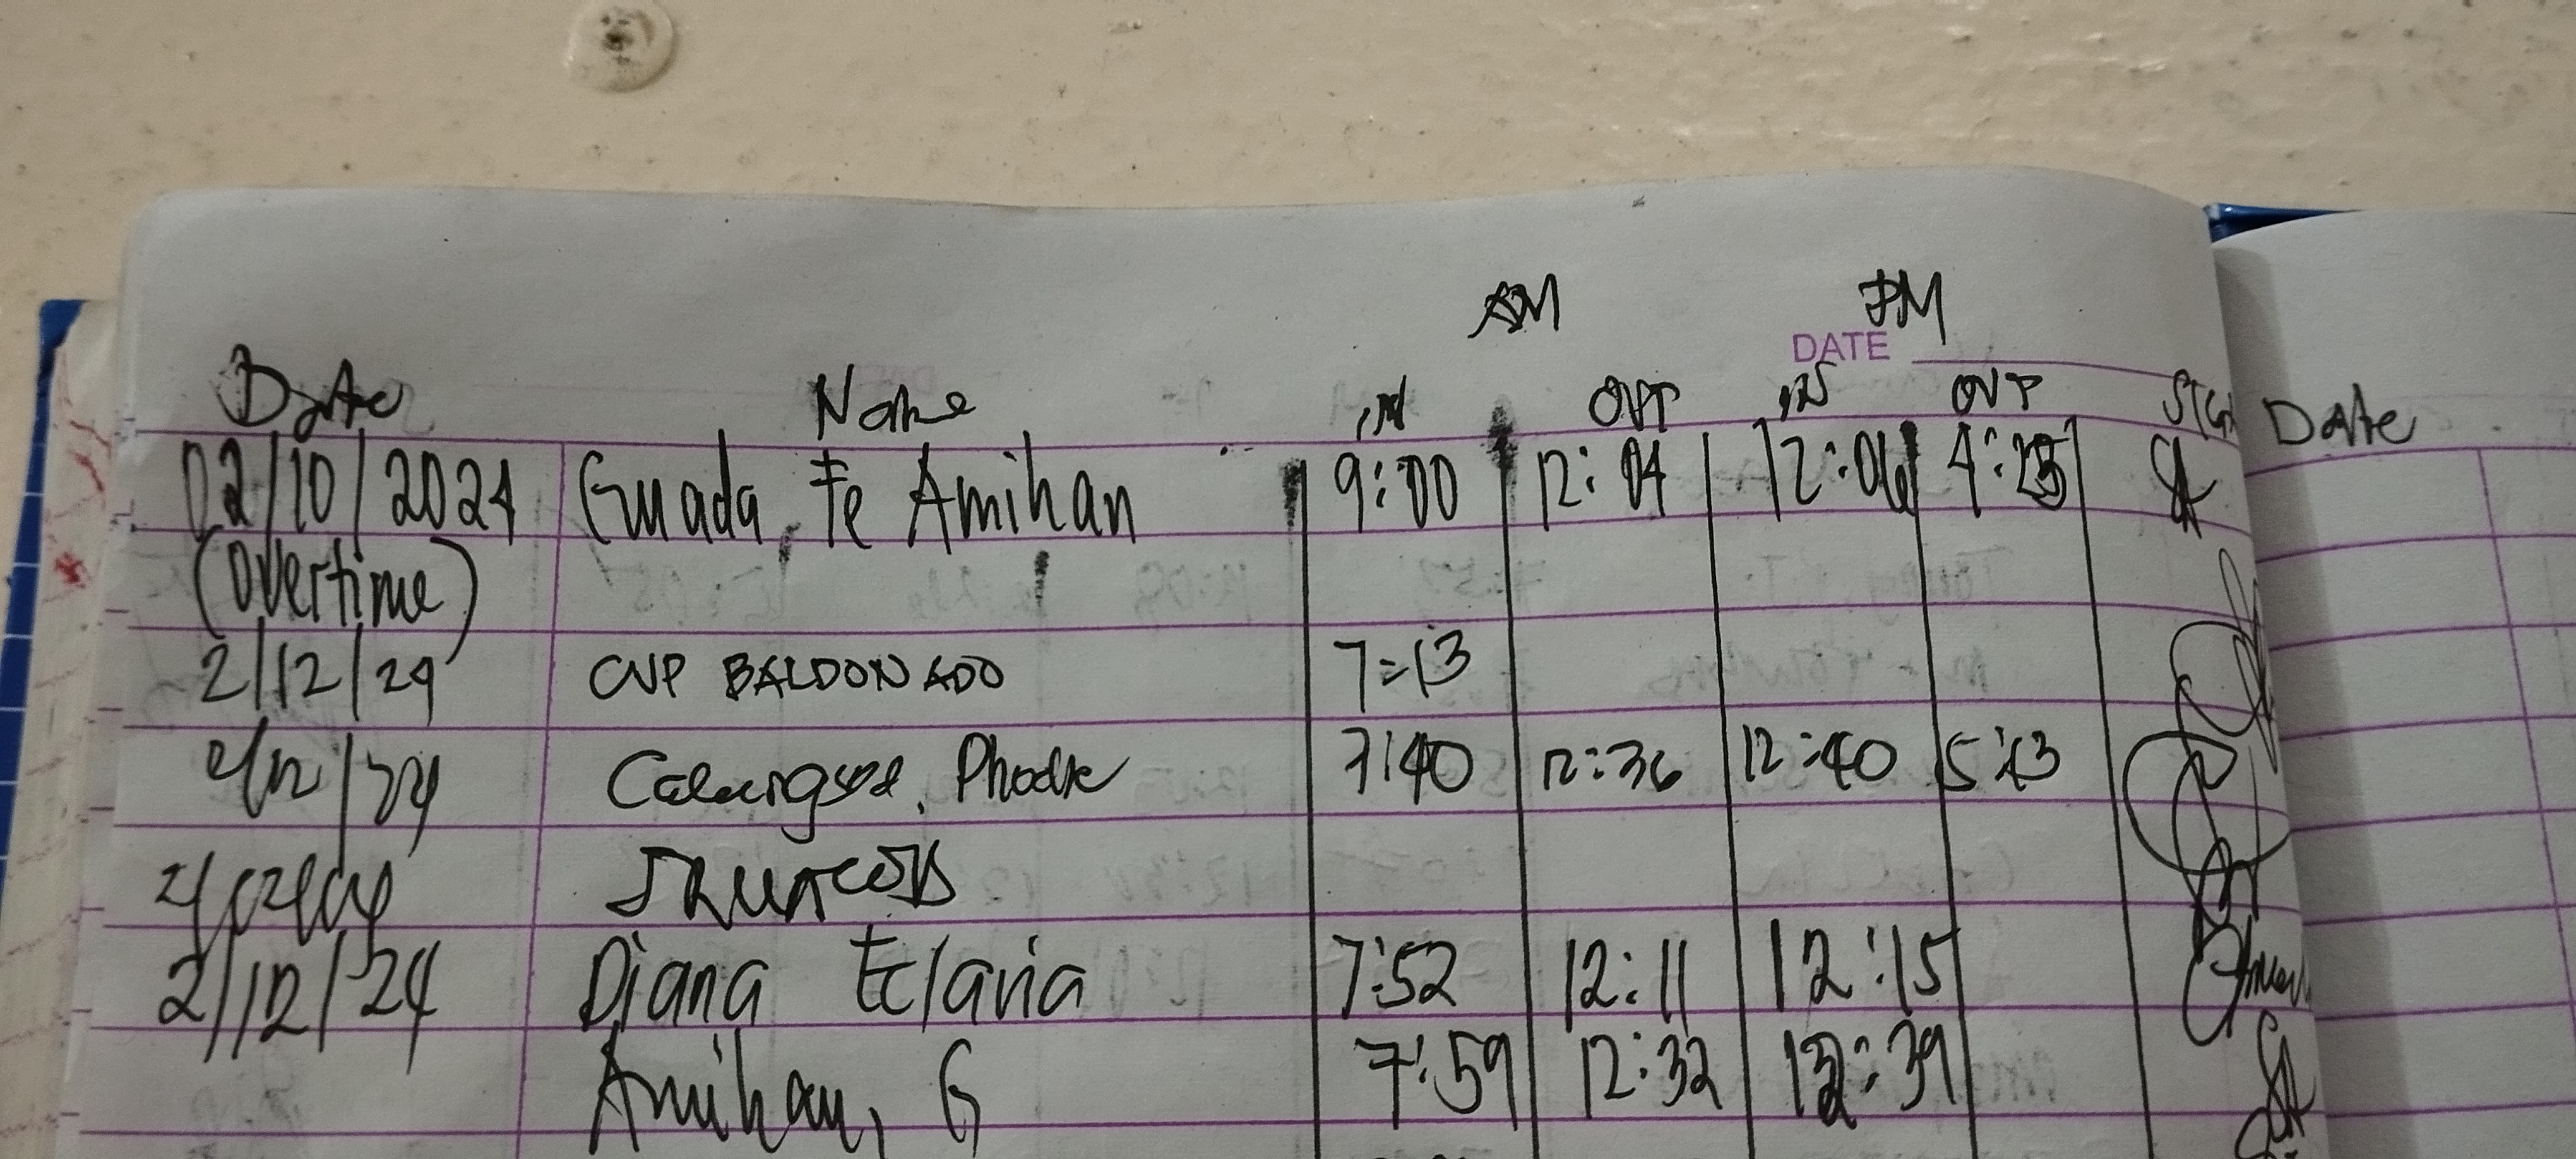 AM PM
DATE
Date Name IN OUT IN OUT SIGN Date
02/10/2024 Guada, Fe Amihan 9:00 12:04 12:06 4:25
(Overtime)
2/12/24 CVP BALDONADO 7=13
2/12/24 Phoebe 7:40 12:36 12:40 5:13
2/12/24 Diana Eclavia 7:52 12:11 12:15
Amihan, G 7:59 12:32 12:39